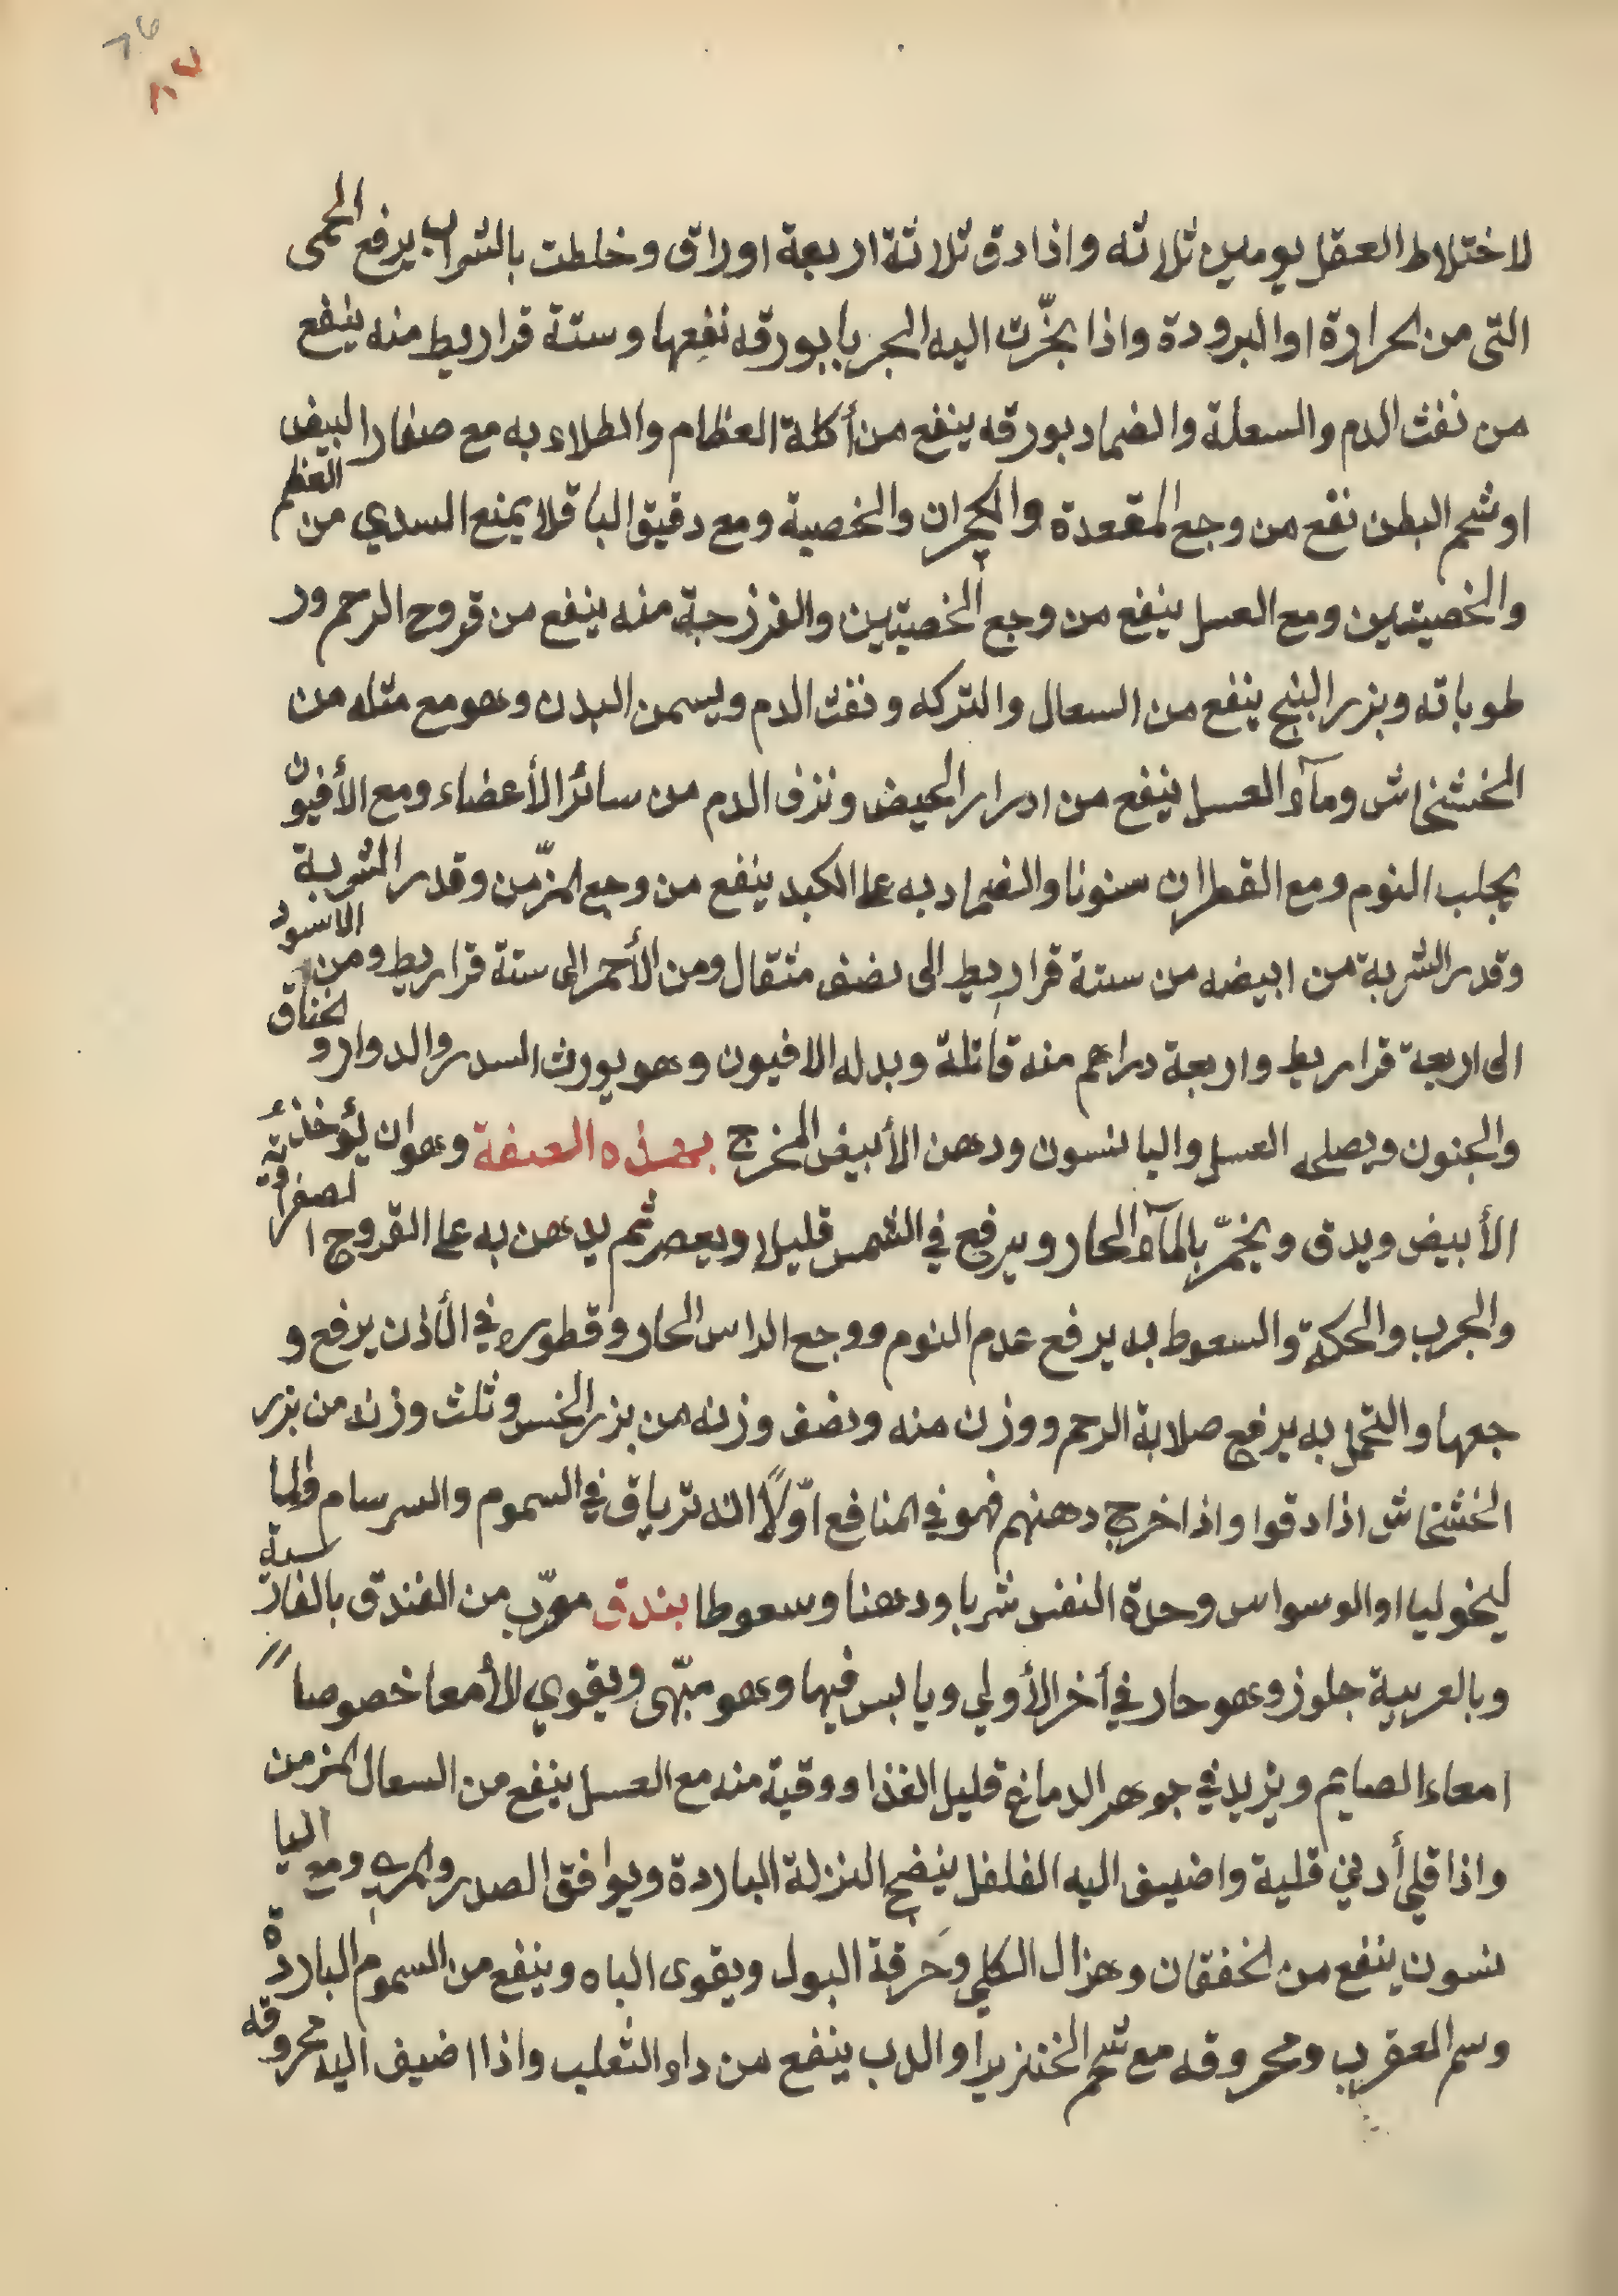 ٧٦
٨٧
لاختلاط العقل يومين ثلاثه واذا دق ثلاثة اربعة اوراق وخلطت بالشراب يرفع الحمى
التى من الحرارة او البرودة واذا بخّرت اليه الجربا بورقه نفعها وستة قراريط منه ينفع
من نفث الدم والسعلة والضماد بورقه ينفع من أكلة العظام والطلاء به مع صفار البيض
او شحم البطن نفع من وجع المقعدة والحجران والخصية ومع دقيق الباقلا يمنع السدي من العظم
والخصيتين ومع العسل ينفع من وجع الخصيتين والفرزجة منه ينفع من قروح الرحم ور
طوباته وبزر البنج ينفع من السعال والتركه ونفث الدم ويسمن البدن وهو مع مثله من
الخشخاش ومآء العسل ينفع من ادرار الحيض ونزف الدم من سائر الأعضاء ومع الأفيون
يجلب النوم ومع القطران سنونا والضماد به على الكبد ينفع من وجع المزّمن وقدر الشربة
وقدر الشربة من ابيضه من ستة قراريط الى نصف مثقال ومن الأحمر الى ستة قراريط ومن الاسود
الى اربعة قراريط واربعة دراهم منه قاتلة وبدله الافيون وهو يورث السدر والدوار والخناق
والجنون ويصلحه العسل واليانسون ودهن الأبيض المخرج بهذه الصفة وهو ان يؤخذ
الأبيض ويدق ويخمّر بالمآء الحار ويرفع في الشمس قليلا ويعصر ثم يدهن به على القروح ا لصفراوية
والجرب والحكة والسعوط به يرفع عدم النوم ووجع الراس الحار وقطوره في الأذن يرفع و
جعها والتحمل به يرفع صلابة الرحم ووزن منه ونصف وزنه من بزر الخس وثلث وزنه من بزر
الخشخاش اذا دقوا واذا اخرج دهنهم فهو في المنافع اوّلاً انه ترياق في السموم والسرسام والما
ليخوليا او الوسواس وحدة النفس شربا ودهنا وسعوطا بندق معرّب من الفندق بالفارسية
وبالعربية جلوز وهو حار في أخر الأولي ويابس فيها وهو مبّهى ويقوي للأمعا خصوصاً
امعاء الصايم ويزيد في جوهر الدماغ قليل الغذا ووقية منه مع العسل ينفع من السعال المزمن
واذا قلي أدني قلية واضيف اليه الفلفل ينضج النزلة الباردة ويوافق الصدر والمري ومع اليا
نسون ينفع من الخفقان وهزال الكلي وحَرقة البول ويقوى الباه وينفع من السموم الباردة
وسم العقرب ومحروقه مع شحم الخنزير او الدب ينفع من داء الثعلب واذا اضيف اليه محروقه